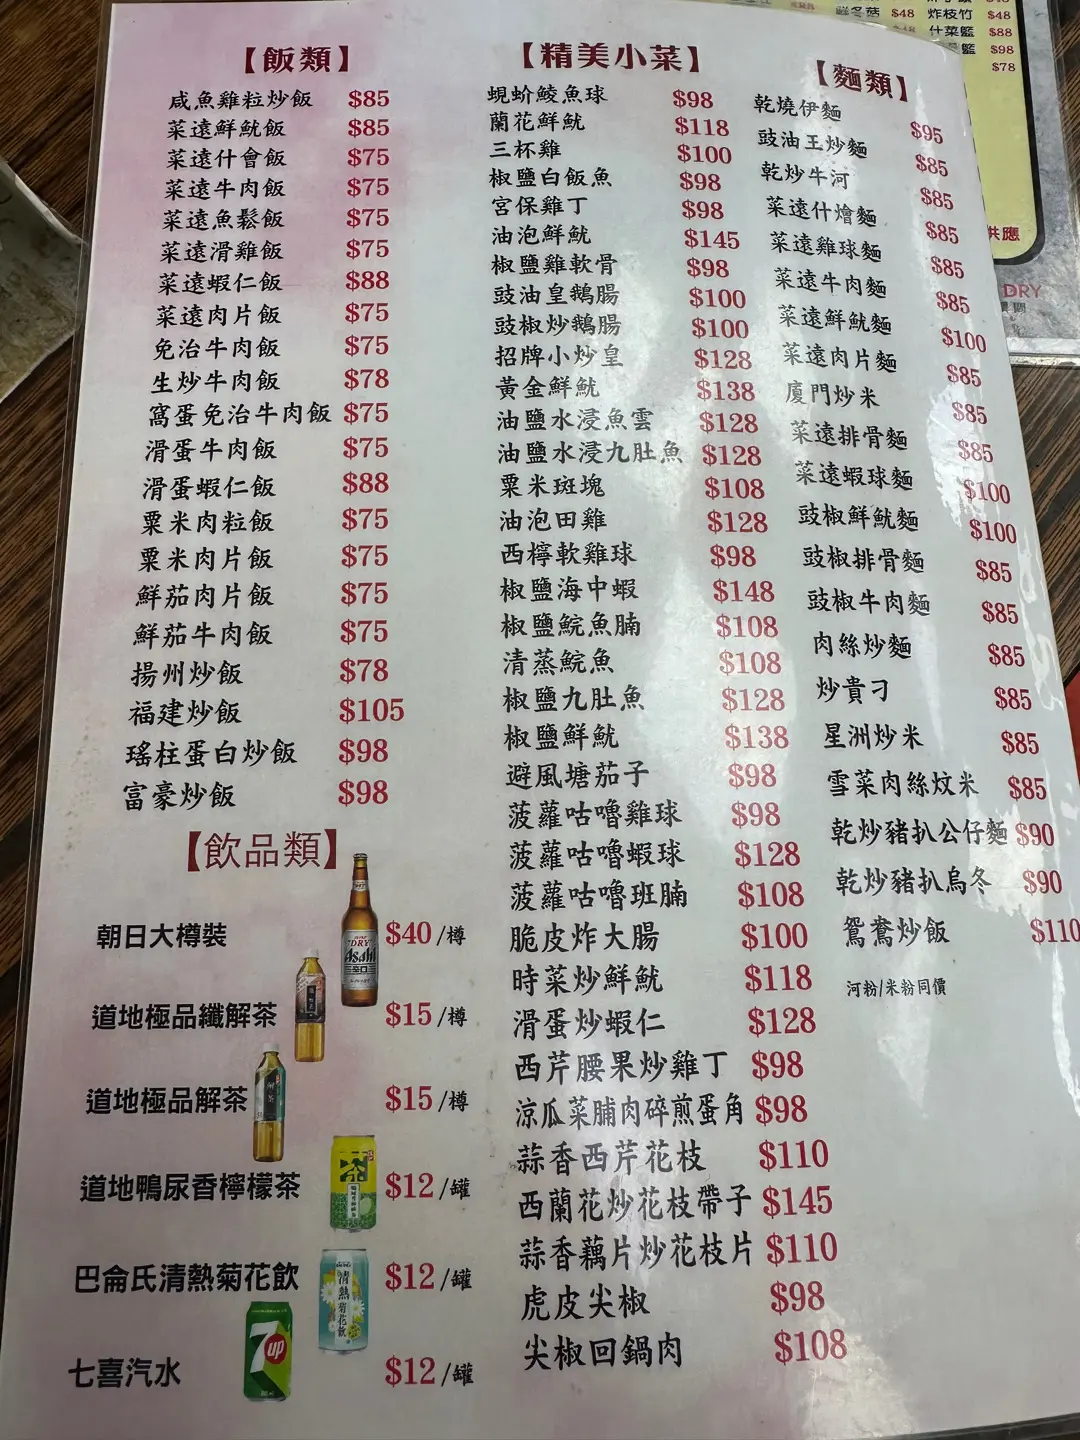 【飯類】
咸魚雞粒炒飯 $85
菜遠鮮魷飯 $85
菜遠什會飯 $75
菜遠牛肉飯 $75
菜遠魚鬆飯 $75
菜遠滑雞飯 $75
菜遠蝦仁飯 $88
菜遠肉片飯 $75
免治牛肉飯 $75
生炒牛肉飯 $78
窩蛋免治牛肉飯 $75
滑蛋牛肉飯 $75
滑蛋蝦仁飯 $88
粟米肉粒飯 $75
粟米肉片飯 $75
鮮茄肉片飯 $75
鮮茄牛肉飯 $75
揚州炒飯 $78
福建炒飯 $105
瑤柱蛋白炒飯 $98
富豪炒飯 $98
【飲品類】
朝日大樽裝 $40/樽
道地極品纖解茶 $15/樽
道地極品解茶 $15/樽
道地鴨尿香檸檬茶 $12/罐
巴侖氏清熱菊花飲 $12/罐
七喜汽水 $12/罐
DRY
Asahi
辛口
茶
清熱菊花飲
7up
【精美小菜】
蜆蚧鯪魚球 $98
蘭花鮮魷 $118
三杯雞 $100
椒鹽白飯魚 $98
宮保雞丁 $98
油泡鮮魷 $145
椒鹽雞軟骨 $98
豉油皇鵝腸 $100
豉椒炒鵝腸 $100
招牌小炒皇 $128
黃金鮮魷 $138
油鹽水浸魚雲 $128
油鹽水浸九肚魚 $128
粟米斑塊 $108
油泡田雞 $128
西檸軟雞球 $98
椒鹽海中蝦 $148
椒鹽鯇魚腩 $108
清蒸鯇魚 $108
椒鹽九肚魚 $128
椒鹽鮮魷 $138
避風塘茄子 $98
菠蘿咕嚕雞球 $98
菠蘿咕嚕蝦球 $128
菠蘿咕嚕班腩 $108
脆皮炸大腸 $100
時菜炒鮮魷 $118
滑蛋炒蝦仁 $128
西芹腰果炒雞丁 $98
涼瓜菜脯肉碎煎蛋角 $98
蒜香西芹花枝 $110
西蘭花炒花枝帶子 $145
蒜香藕片炒花枝片 $110
虎皮尖椒 $98
尖椒回鍋肉 $108
【麵類】
乾燒伊麵 $95
豉油王炒麵 $85
乾炒牛河 $85
菜遠什燴麵 $85
菜遠雞球麵 $85
菜遠牛肉麵 $85
菜遠鮮魷麵 $100
菜遠肉片麵 $85
廈門炒米 $85
菜遠排骨麵 $85
菜遠蝦球麵 $100
豉椒鮮魷麵 $100
豉椒排骨麵 $85
豉椒牛肉麵 $85
肉絲炒麵 $85
炒貴刁 $85
星洲炒米 $85
雪菜肉絲炆米 $85
乾炒豬扒公仔麵 $90
乾炒豬扒烏冬 $90
鴛鴦炒飯 $110
河粉/米粉同價
鮮冬菇 $48 炸枝竹 $48
什菜籃 $88
籃 $98
$78
供應
DRY